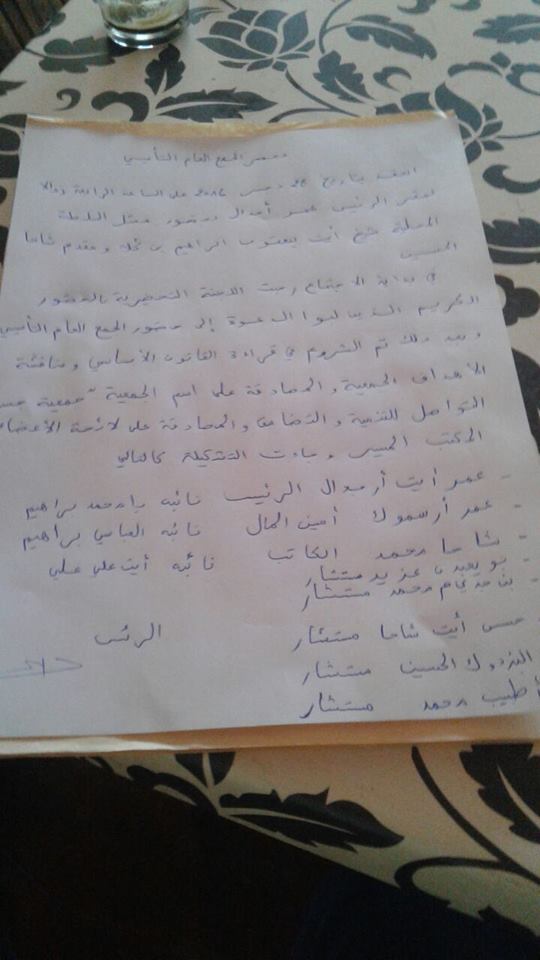 محضر الجمع العام التأسيسي
انعقد بتاريخ 28 على الساعة الرابعة زوالا
بمقر الرئيس عمر أرموال بحضور ممثل السلطة
المحلية شيخ أيت يعقوب ابراهيم بن ومقدم شاما
الحسين
في بداية الاجتماع رحبت اللجنة التحضيرية بالحضور
الكريم الذين لبوا الدعوة إلى حضور الجمع العام التأسيسي
وبعد ذلك تم الشروع في قراءة القانون الأساسي ومناقشة
الأهداف الجمعية والمصادقة على اسم الجمعية "جمعية
التواصل للتنمية والتضامن والمصادقة على لائحة الأعضاء
المكتب المسير وجاءت التشكيلة كالتالي
- عمر أيت أرموال الرئيس نائبه محمد براهيم
- عمر أرسموك أمين المال نائبه العباسي براهيم
- شاما محمد الكاتب نائبه أيت علي علي
- عزيز مستشار
- محمد مستشار
- حسن أيت شاما مستشار
الرئيس
الحسين مستشار
أطيب محمد مستشار